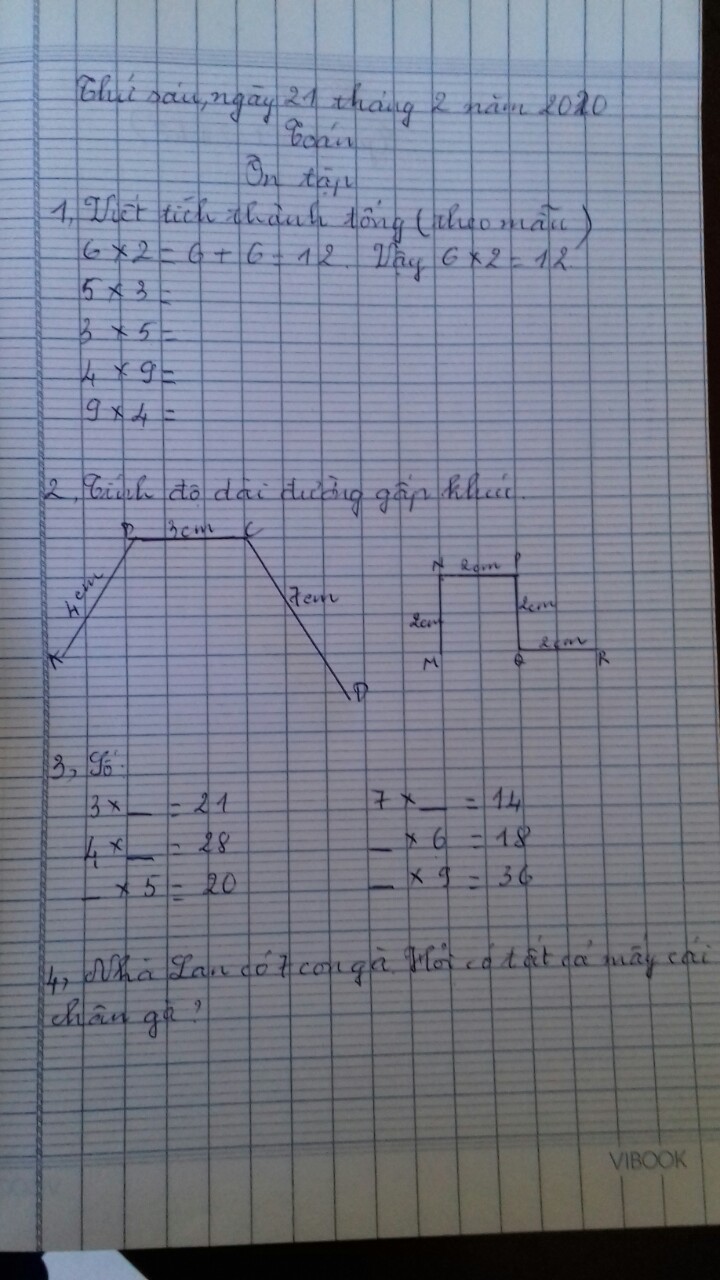 Thứ sáu, ngày 21 tháng 2 năm 2020
Toán
Ôn tập
1, Viết tích thành tổng (theo mẫu)
6 × 2 = 6 + 6 = 12. Vậy 6 × 2 = 12
5 × 3 =
3 × 5 =
4 × 9 =
9 × 4 =
2, Tính độ dài đường gấp khúc.
3cm C
4cm
7cm
K
D
N 2cm P
2cm 2cm
M Q 2cm R
3, Số
3 × _ = 21 7 × _ = 14
4 × _ = 28 _ × 6 = 18
_ × 5 = 20 _ × 9 = 36
4, Nhà Lan có 7 con gà. Hỏi có tất cả mấy cái
chân gà?
VIBOOK